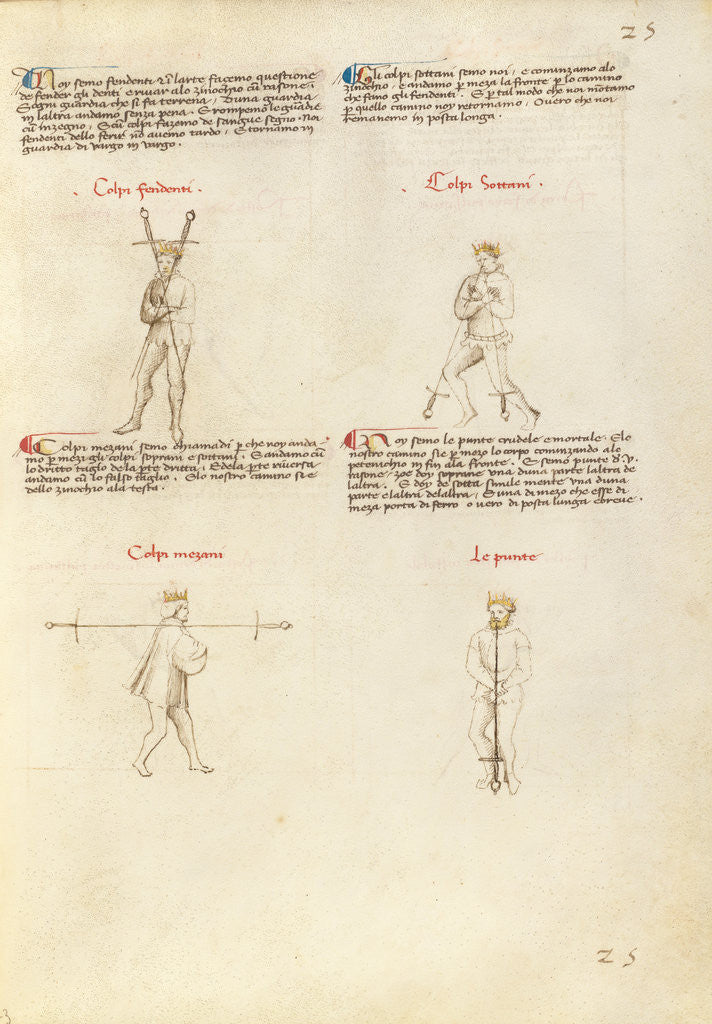 25
Noy semo fendenti e in larte façemo questione
de fender gli denti e rivar alo zinochio cum rasone.
E ogni guardia che si fa terrena, d'una guardia
in laltra andamo senza pena. E rompemo le guardie
cum inzegno, E cum colpi fazemo de sangue segno. Noi
fendenti dello ferir non avemo tardo, E tornamo in
guardia di vargo in vargo.
Gli colpi sottani semo noi, e cominzamo alo
zinochio, e andamo per meza la fronte per lo camino
che fano gli fendenti. E per tal modo che noi montamo
per quello camino noy retornamo, Overo che noi
remanemo in posta longa.
. Colpi fendenti .
. Colpi Sottani .
Colpi mezani semo chiamadi per che noy anda-
mo per mezi gli colpi soprani e sottani. E andamo cum
lo dritto taglio de la parte dritta, E de la parte riversa
andamo cum lo falso taglio. E lo nostro camino si e
dello zinochio ala testa.
Noy semo le punte crudele e mortale. E lo
nostro camino si e per mezo lo corpo cominzando alo
petenichio in fin ala fronte. E semo punte d. V.
rasone, zoe doy soprane una d'una parte laltra de
laltra. E doy de sotta simile mente una d'una
parte e laltra de laltra, E una di mezo che esse di
meza porta di ferro o vero di posta lunga e breve.
Colpi mezani
Le punte
25
3